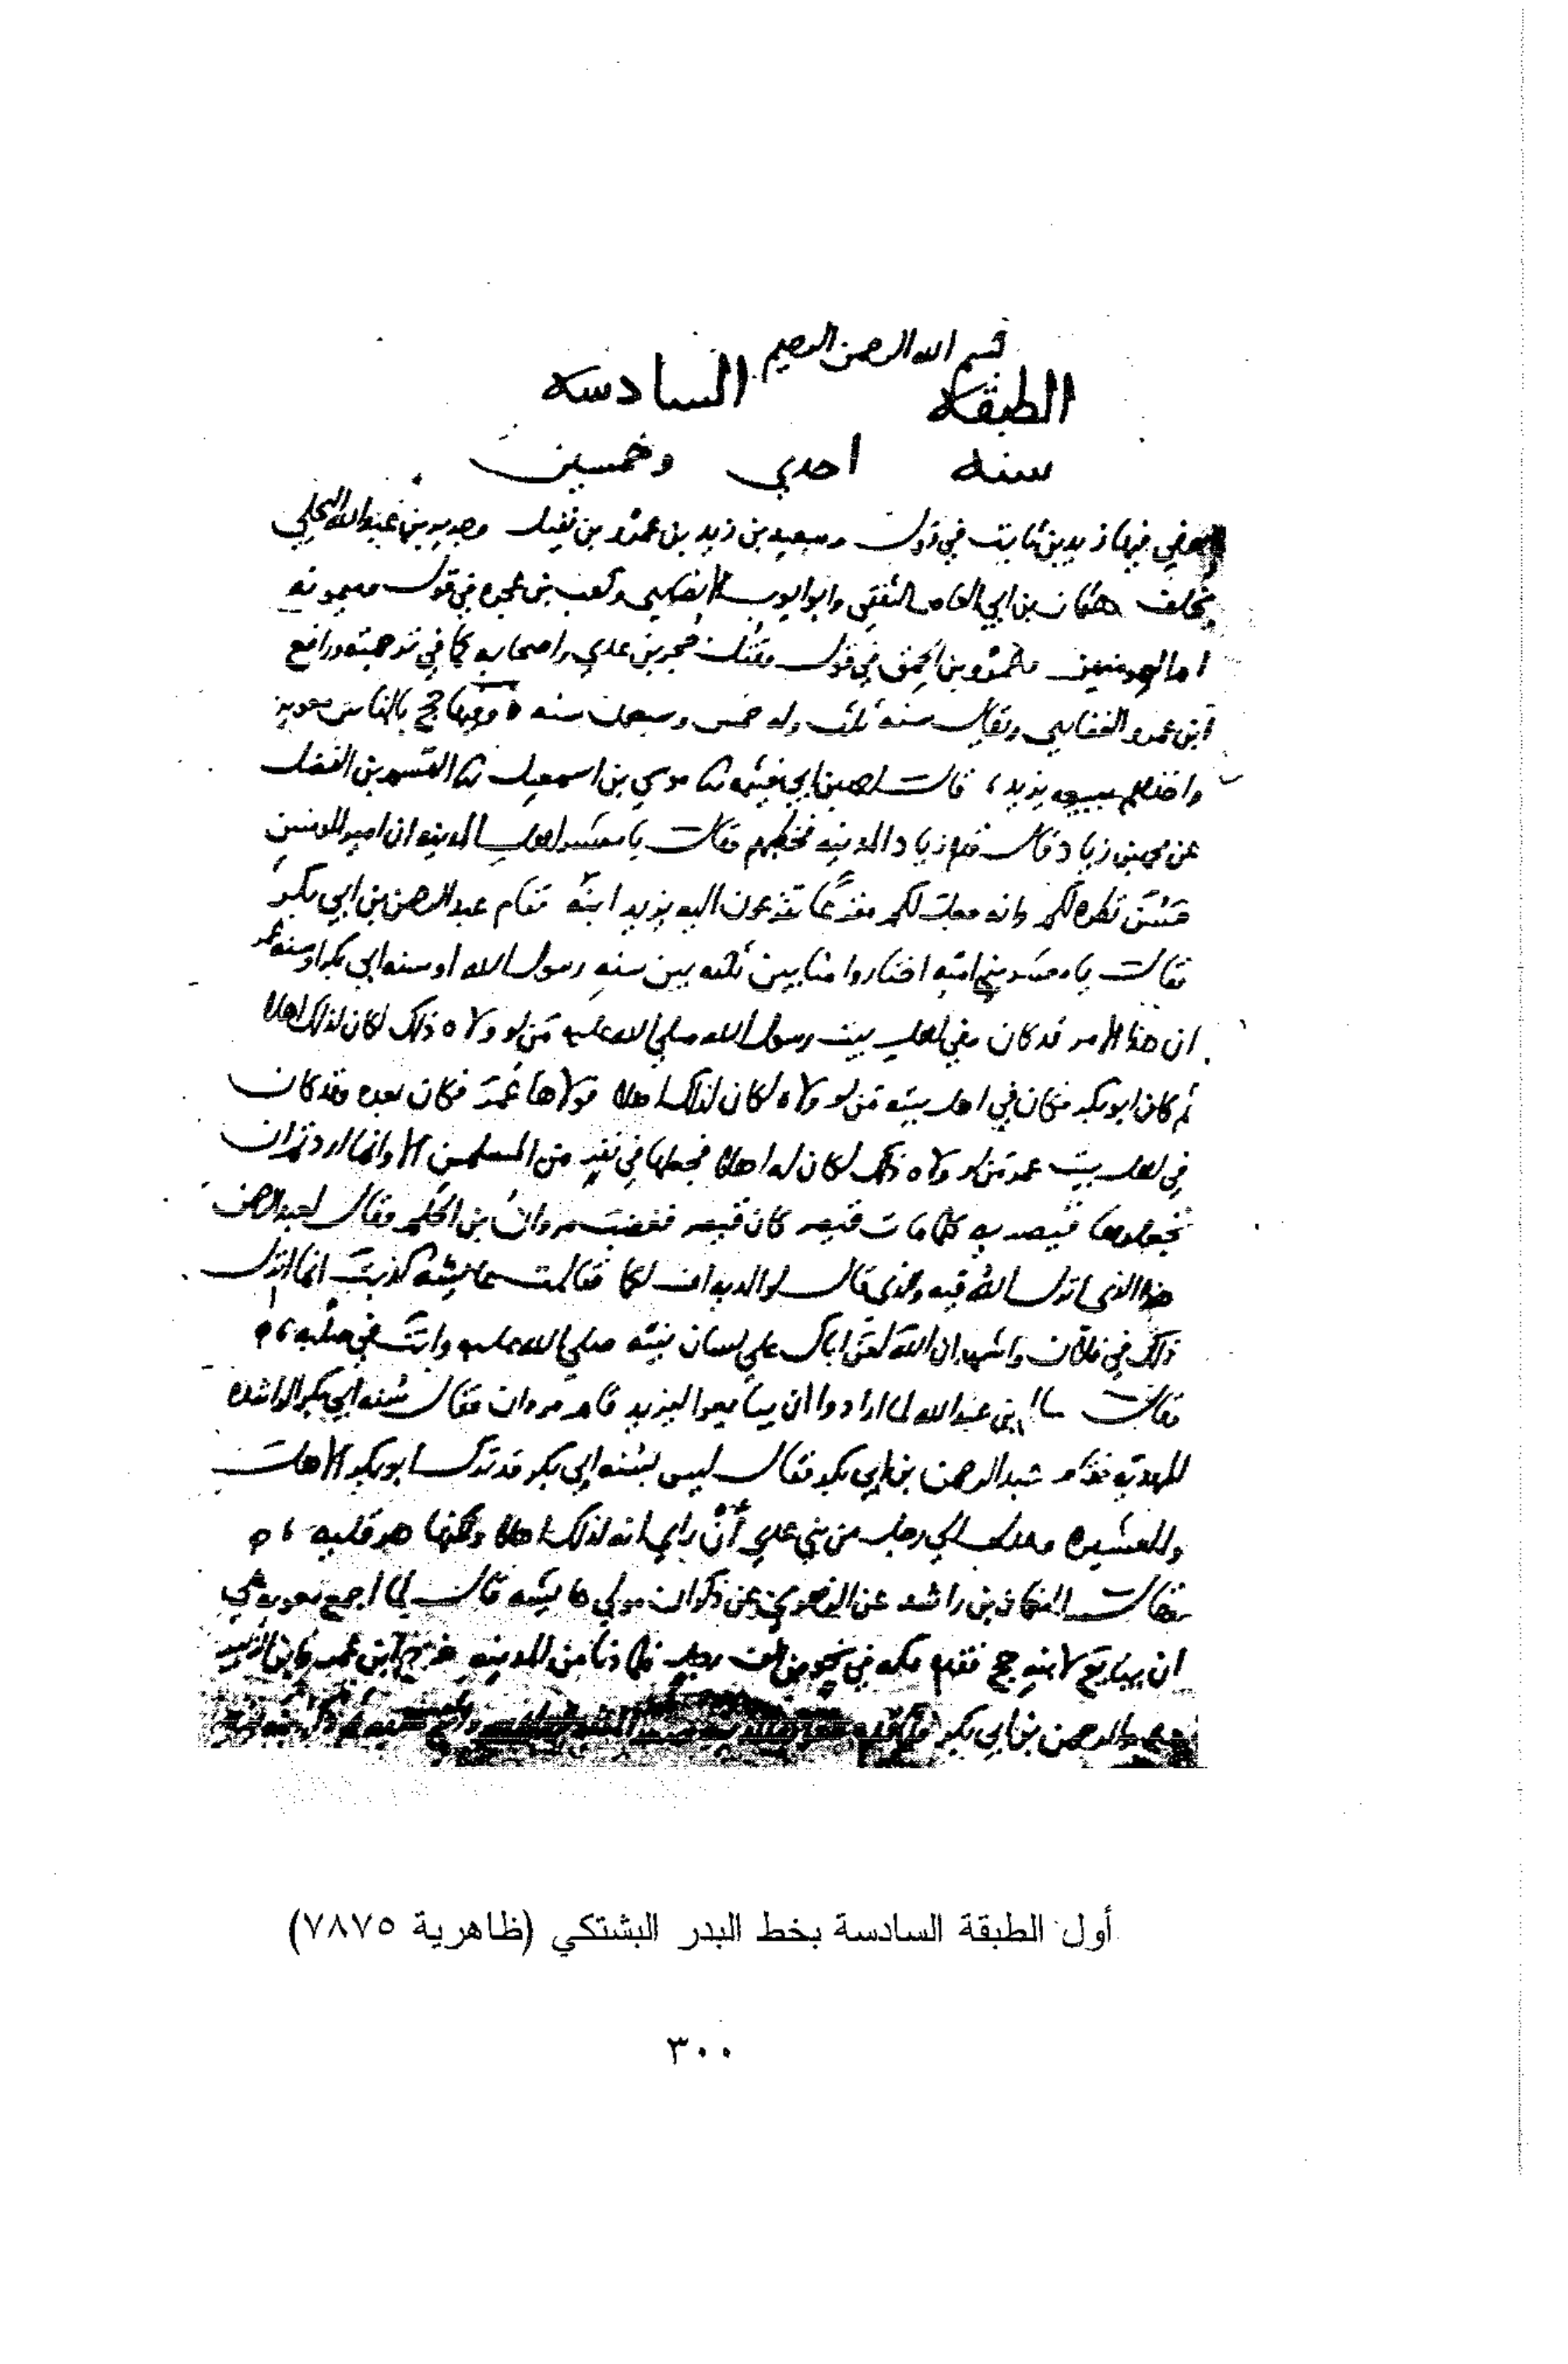 بسم الله الرحمن الرحيم
الطبقه السادسه
سنه احدي وخمسين
توفي فيها زيد بن ثابت في قول وسعيد بن زيد بن عمرو بن نفيل وجرير بن عبد الله البجلي
بخلف وعثمان بن ابي العاص الثقفي وابو ايوب الانصاري وكعب بن عجره في قول وميمونه
ام المومنين وعمرو بن الحمق في قول وقتل حجر بن عدي واصحابه كما في ترجمته ورافع
ابن عمرو الغفاري ويقال سنه ثلث وله خمس وسبعون سنه وفيها حج بالناس معويه
واخذهم ببيعه يزيد قال احمد بن ابي خيثمه ثنا موسي بن اسمعيل ثنا القسم بن الفضل
عن محمد بن زياد قال قدم زياد المدينه فخطبهم وقال يا معشر اهل المدينه ان امير المومنين
حسن نظره لكم وانه جعل لكم مفزعا تفزعون اليه يزيد ابنه فقام عبد الرحمن بن ابي بكر
فقال يا معشر بني اميه اختاروا منا بين ثلثه بين سنه رسول الله او سنه ابي بكر او سنه عمر
ان هذا الامر قد كان وفي اهل بيت رسول الله صلي الله عليه من لو ولاه ذلك لكان لذلك اهلا
ثم كان ابو بكر فكان في اهل بيته من لو ولاه لكان لذلك اهلا فولاها عمر فكان بعده وقد كان
في اهل بيت عمر من لو ولاه ذلك لكان له اهلا فجعلها في نفر من المسلمين الا وانما اردتم ان
تجعلوها قيصريه كلما مات قيصر كان قيصر فغضب مروان بن الحكم وقال لعبد الرحمن
هذا الذي انزل الله فيه والذي قال لوالديه اف لكما فقالت عايشه كذبت انما انزل
ذلك في فلان واشهد ان الله لعن اباك علي لسان نبيه صلي الله عليه وانت في صلبه
وقال سالم بن عبد الله لما ارادوا ان يبايعوا ليزيد قام مروان فقال سنه ابي بكر الراشده
المهديه فقام عبد الرحمن بن ابي بكر فقال ليس بسنه ابي بكر قد ترك ابو بكر الاهل
والعشيره وعدل الي رجل من بني عدي ان راي انه لذلك اهلا ولكنها هرقليه
وقال النعمان بن راشد عن الزهري عن ذكوان مولي عايشه قال لما اجمع معويه علي
ان يبايع لابنه حج فقدم مكه في نحو من الف رجل فلما دنا من المدينه خرج ابن عمر وابن الزبير
وعبد الرحمن بن ابي بكر
أول الطبقة السادسة بخط البدر البشتكي (ظاهرية ٧٨٧٥)
٣٠٠